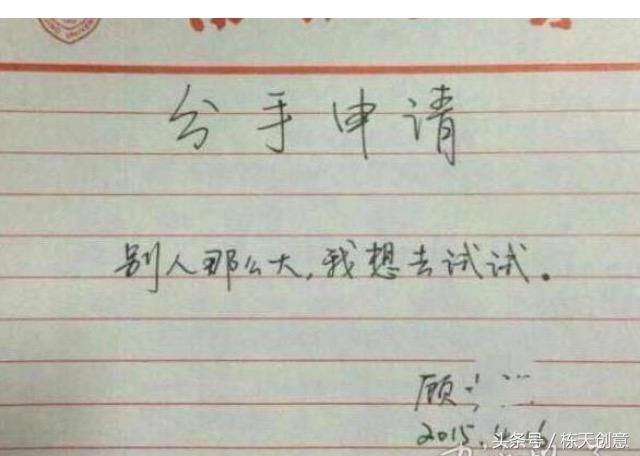 分手申请
别人那么大,我想去试试。
顾
2015.4.6
头条号/栋天创意